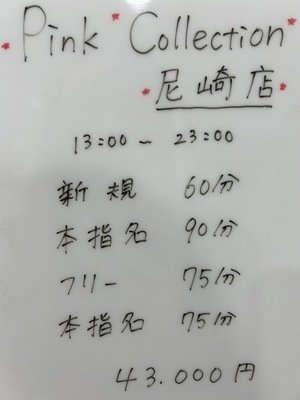 Pink Collection
尼崎店
13:00 ~ 23:00
新規 60分
本指名 90分
フリー 75分
本指名 75分
43.000円